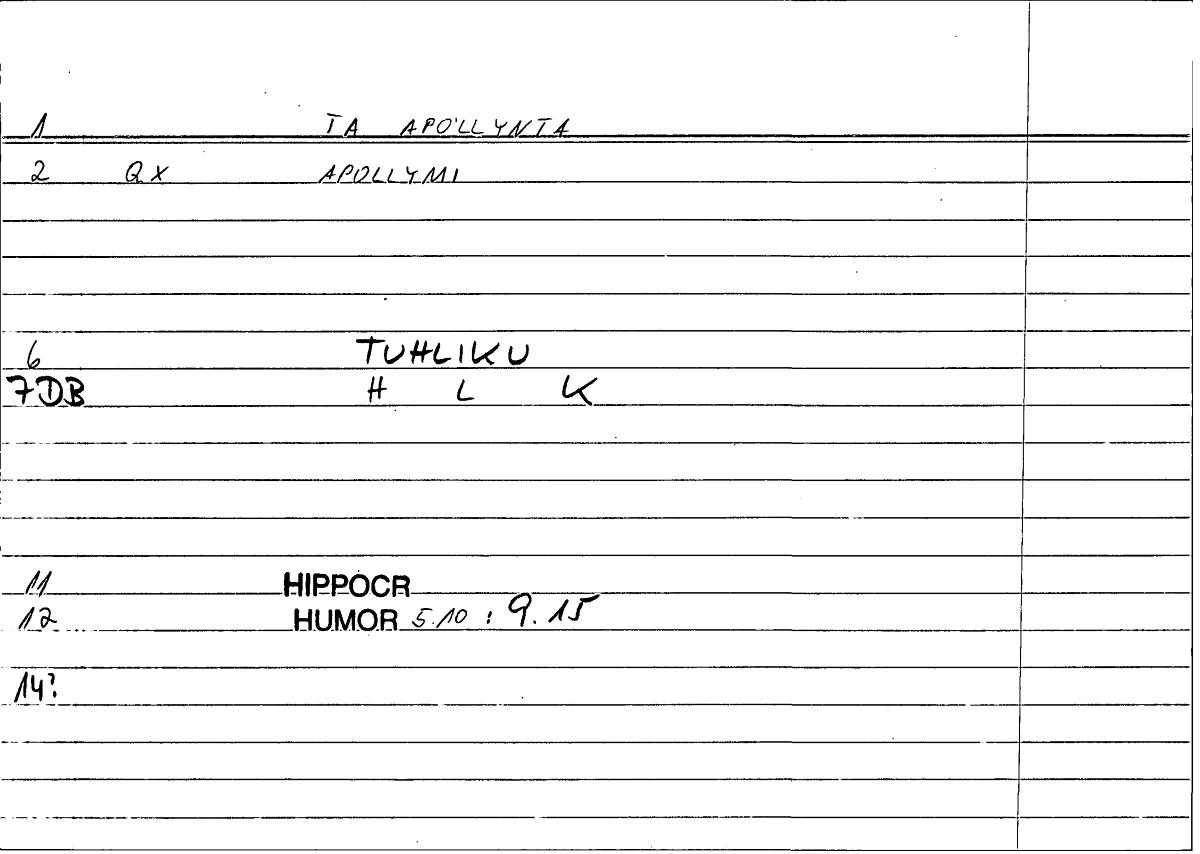 1 TA APO'LLYNTA
2 QX APOLLYMI
6 TUHLIKU
7DB H L K
11 HIPPOCR
12 HUMOR 5.10 : 9.15
14?